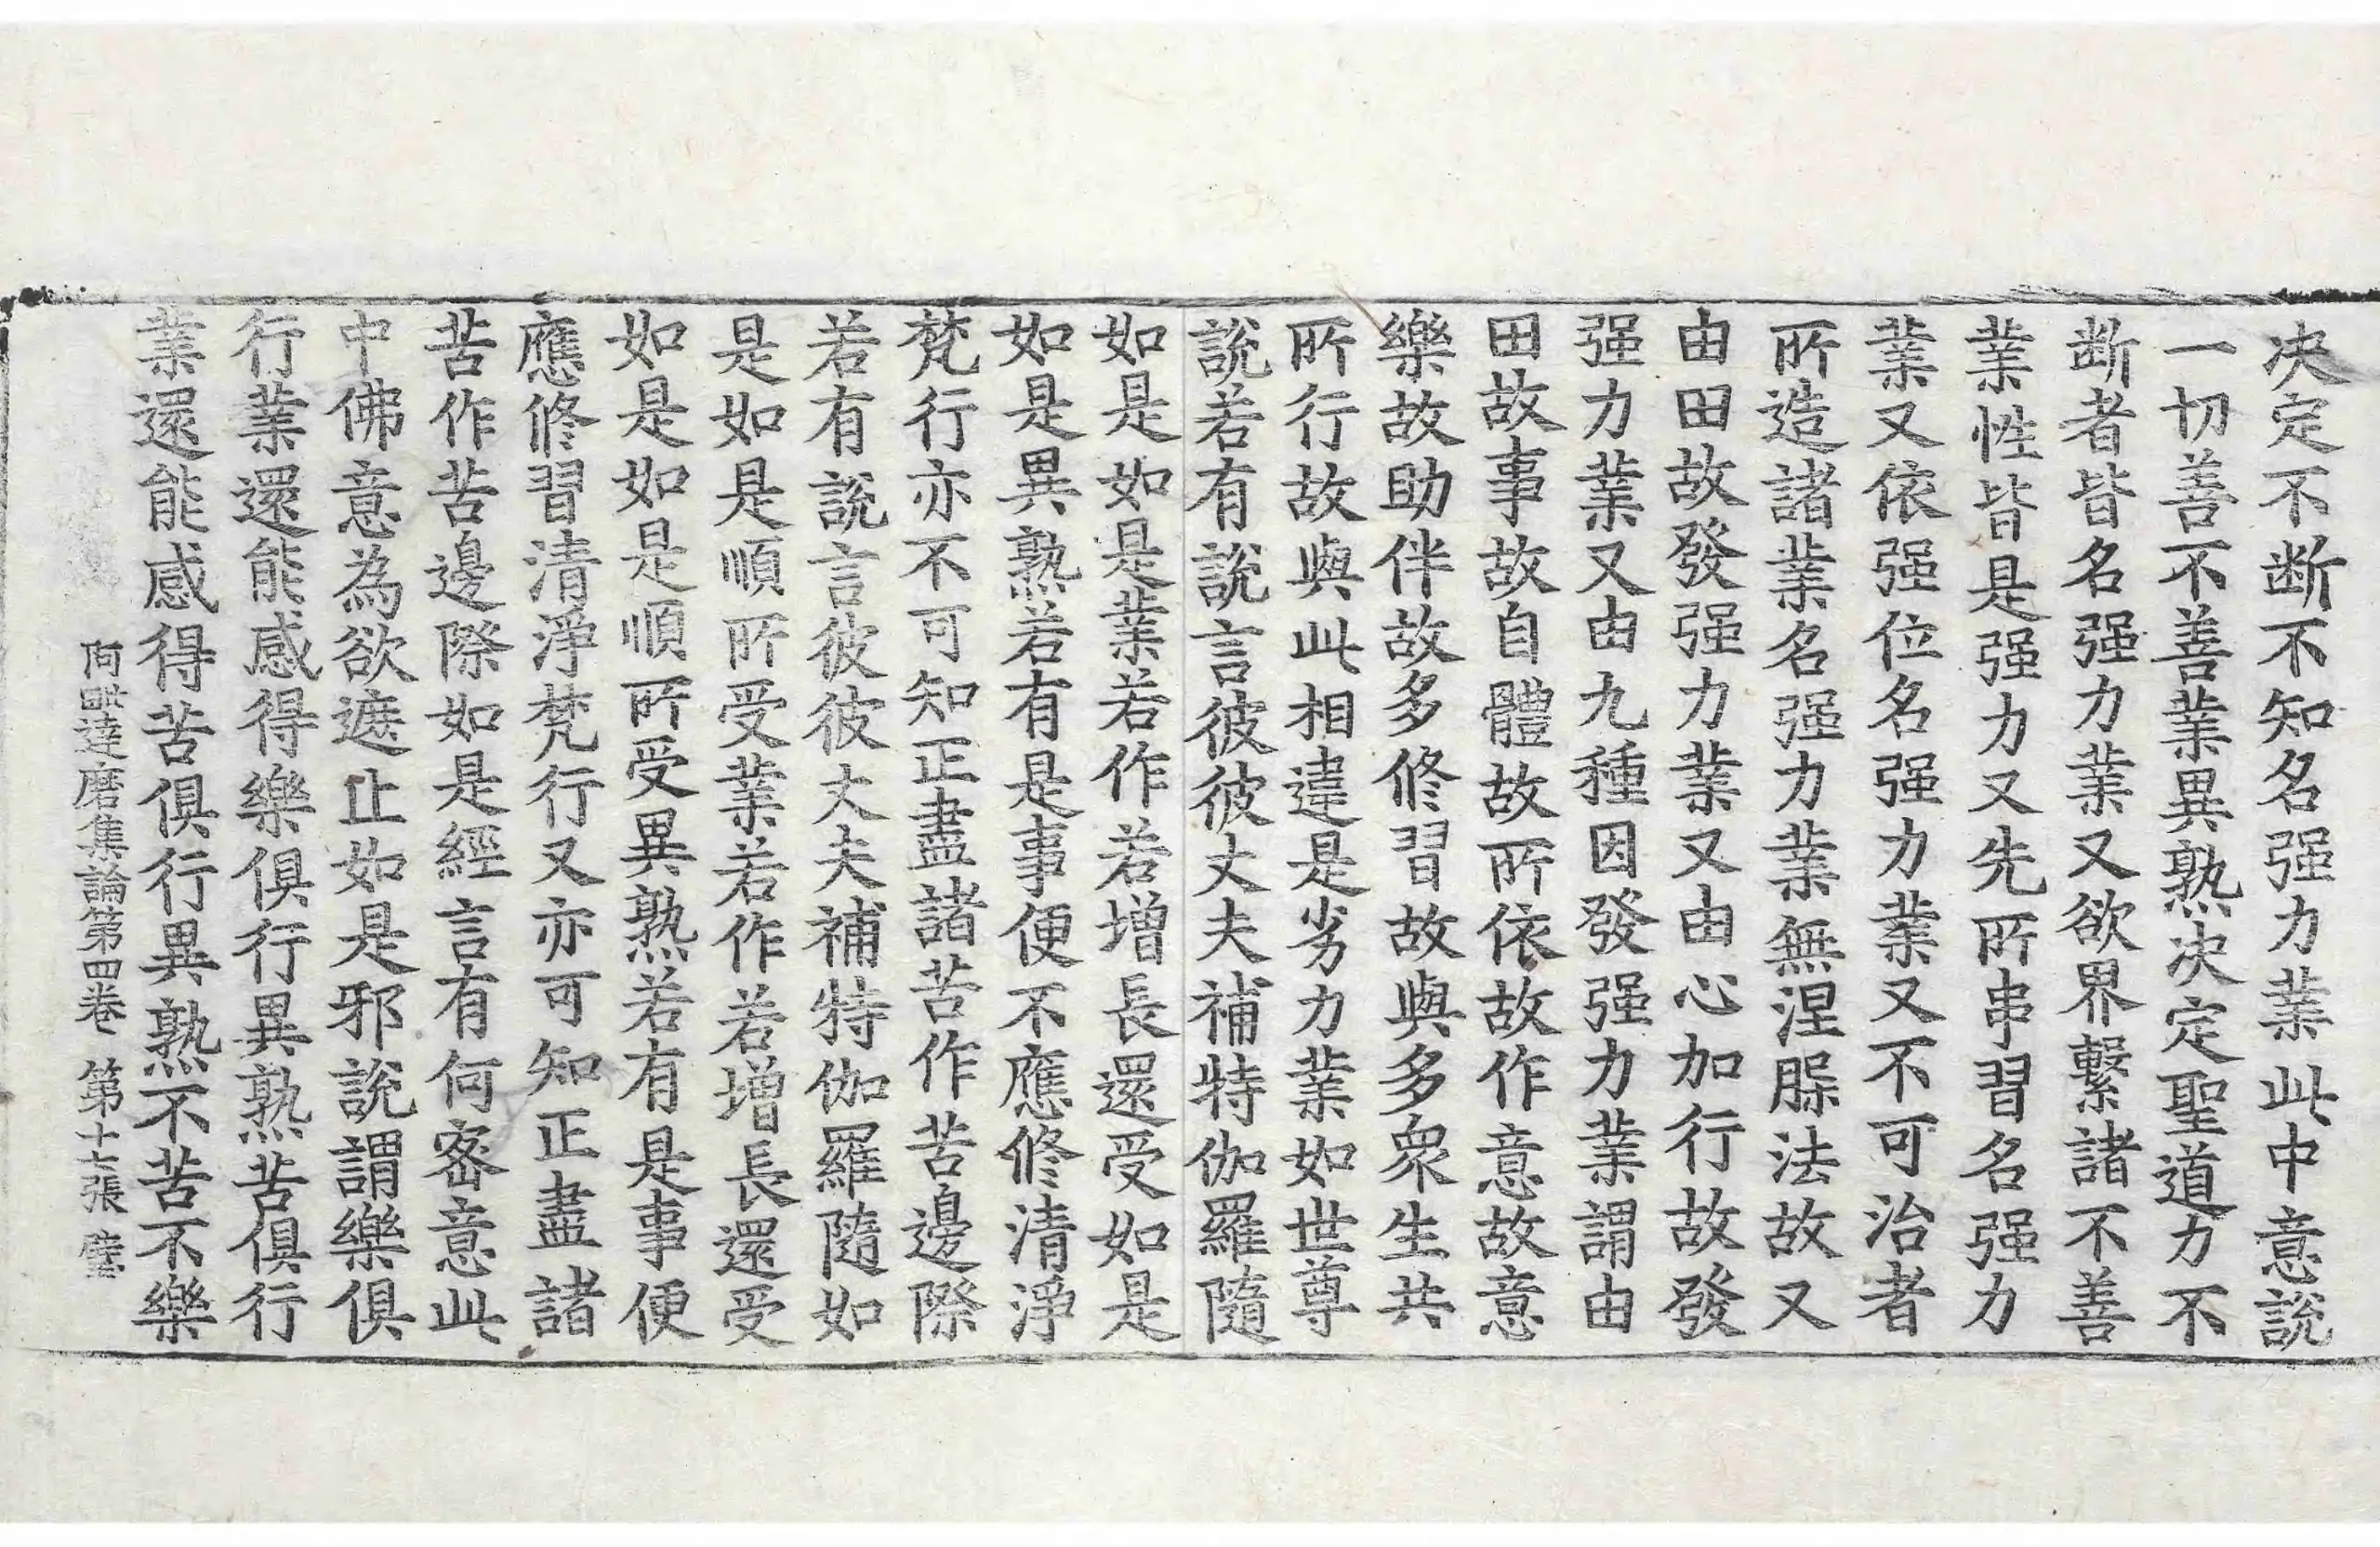 决定不断不知名强力業此中意說
一切善不善業異熟决定聖道力不
断者皆名强力業又欲界繫諸不善
業性皆是强力又先所串習名强力
業又依强位名强力業又不可治者
所造諸業名强力業無涅槃法故又
由田故發强力業又由心加行故發
强力業又由九種因發强力業謂由
田故事故自體故所依故作意故意
樂故助伴故多修習故與多衆生共
所行故與此相違是劣力業如世尊
說若有說言彼彼丈夫補特伽羅隨
如是如是業若作若增長還受如是
如是異熟若有是事便不應修清淨
梵行亦不可知正盡諸苦作苦邊際
若有說言彼彼丈夫補特伽羅隨如
是如是順所受業若作若增長還受
如是如是順所受異熟若有是事便
應修習清淨梵行又亦可知正盡諸
苦作苦邊際如是經言有何密意此
中佛意為欲遮止如是邪說謂樂俱
行業還能感得樂俱行異熟苦俱行
業還能感得苦俱行異熟不苦不樂
阿毗達磨集論第四卷 第十七張